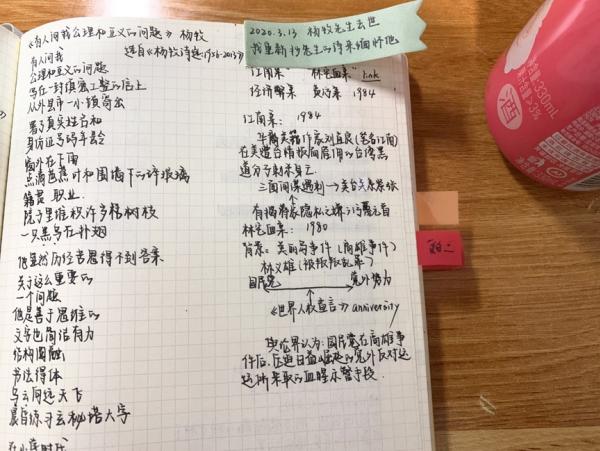 《有人问我公理和正义的问题》 杨牧
选自《杨牧诗选:1956-2013》
有人问我
公理和正义的问题
写在一封缜密工整的信上
从外县市一小镇寄出
署了真实姓名和
身份证号码年龄
窗外在下雨
点滴芭蕉叶和围墙上的碎玻璃
籍贯 职业
院子里堆积许多枯树枝
一只黑鸟在扑翅
他显然历经苦思得不到答案
关于这么重要的
一个问题
他是善于思维的
文字也简洁有力
结构圆融
书法得体
乌云向远天飞
晨昏练习玄秘塔大字
在小学时代
2020.3.13 杨牧先生去世
我重新抄先生的诗来缅怀他
江南案 林宅血案 link
经济弊案 黄 案 1984
江南案: 1984
华裔美籍作家刘宜良(笔名江南)
在美遭台情报局雇用的台湾黑
道分子刺杀身亡
三面间谍遇刺→美台关系紧张
有揭蒋家隐私之嫌
林宅血案: 1980
背景: 美丽岛事件(高雄事件)
林义雄(被指叛乱罪)
国民党 党外势力
《世界人权宣言》anniversary
舆论认为:国民党在高雄事
件后,压迫日益崛起的党外反对运
动所采取的血腥示警手段.
330mL
果汁含量≥3%
酒